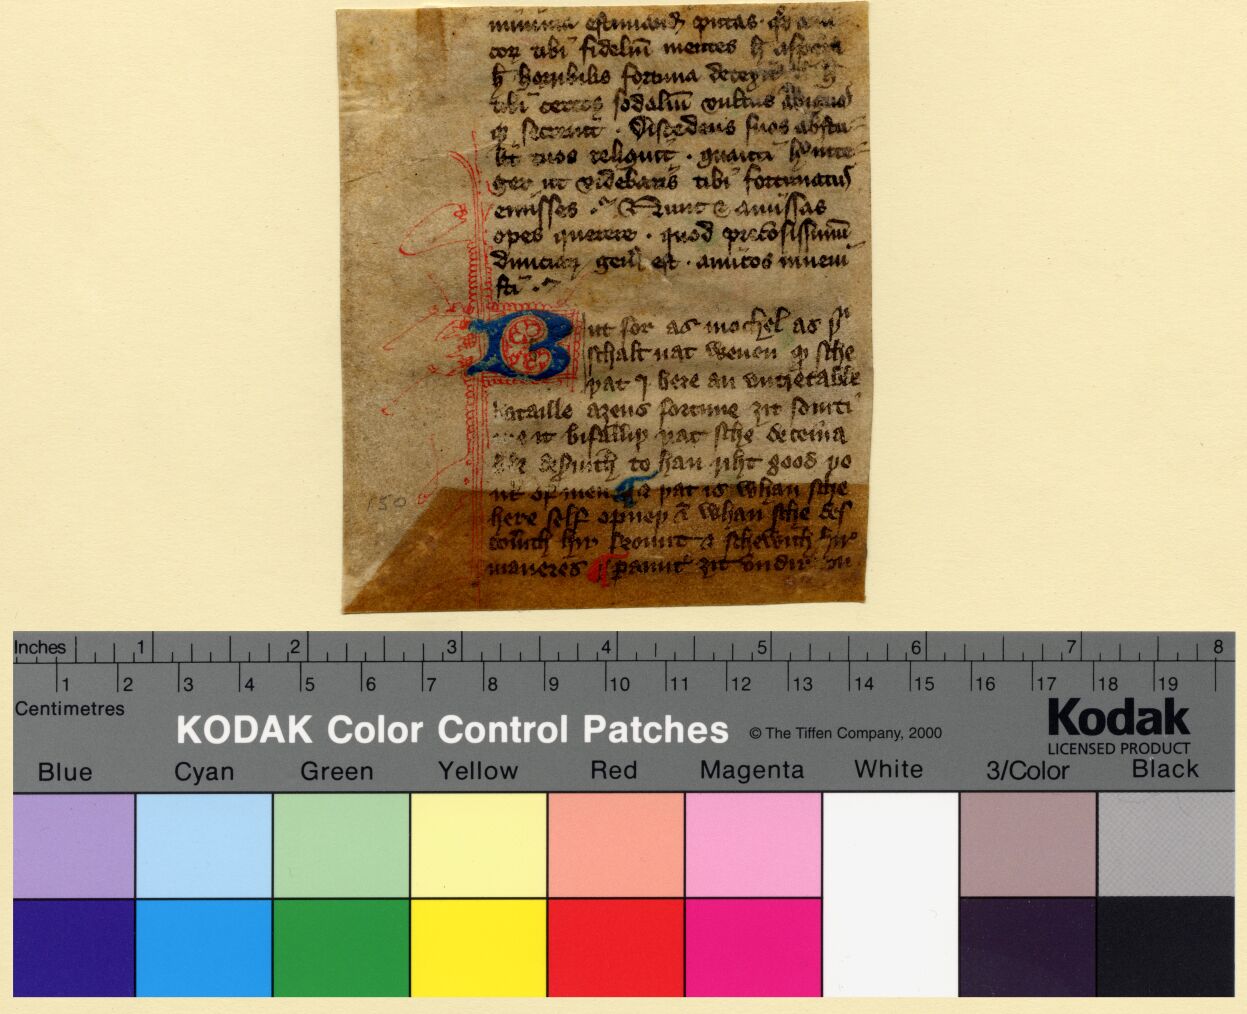 minima estimandū putas · qd̄ a
cor tibi fideliū mentes h̄ aspera
h̄ horribilis fortuna detexit h̄
tibi certos sodaliū vultus ābiguos
q̢ secreuit · Discedens suos abstu-
lit tuos reliquit · quanti h̄ inte-
ger ut videbaris tibi fortunatus
emisses · Nunc & amissas
opes querere · quod preciosissimū
diuiciaꝝ gen̄ est · amicos inueni
sti ·
But for as mochel as þu
schalt nat wenen q̢ sche
þat I bere an vntretable
bataille aȝens fortune ȝit somti
me it bifalliþ þat sche deceiua
ble desirith to han riht good þo
nk of men & þat is whan sche
here self opneþ & whan sche des
couith hir frount & schewith hir
maneres parauē ȝit vndir
150
Inches 1 2 3 4 5 6 7 8
1 2 3 4 5 6 7 8 9 10 11 12 13 14 15 16 17 18 19
Centimetres
KODAK Color Control Patches © The Tiffen Company, 2000 Kodak
LICENSED PRODUCT
Blue Cyan Green Yellow Red Magenta White 3/Color Black